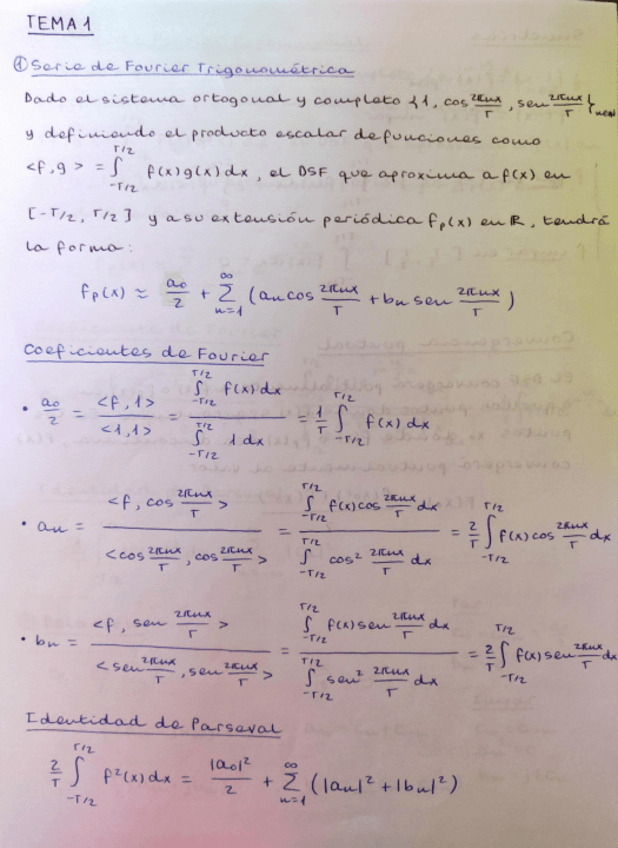 TEMA 1
① Serie de Fourier Trigonométrica
Dado el sistema ortogonal y completo {1, cos 2πnx/T, sen 2πnx/T}n∈N
y definiendo el producto escalar de funciones como
<f,g> = ∫_{-T/2}^{T/2} f(x)g(x)dx, el DSF que aproxima a f(x) en
[-T/2, T/2] y a su extensión periódica fp(x) en ℝ, tendrá
la forma:
fp(x) ≈ a₀/2 + Σ_{n=1}^{∞} (an cos 2πnx/T + bn sen 2πnx/T)
Coeficientes de Fourier
• a₀/2 = <f,1>/<1,1> = ∫_{-T/2}^{T/2} f(x)dx / ∫_{-T/2}^{T/2} 1 dx = 1/T ∫_{-T/2}^{T/2} f(x) dx
• an = <f, cos 2πnx/T> / <cos 2πnx/T, cos 2πnx/T> = ∫_{-T/2}^{T/2} f(x)cos 2πnx/T dx / ∫_{-T/2}^{T/2} cos² 2πnx/T dx = 2/T ∫_{-T/2}^{T/2} f(x)cos 2πnx/T dx
• bn = <f, sen 2πnx/T> / <sen 2πnx/T, sen 2πnx/T> = ∫_{-T/2}^{T/2} f(x)sen 2πnx/T dx / ∫_{-T/2}^{T/2} sen² 2πnx/T dx = 2/T ∫_{-T/2}^{T/2} f(x)sen 2πnx/T dx
Identidad de Parseval
2/T ∫_{-T/2}^{T/2} f²(x)dx = |a₀|²/2 + Σ_{n=1}^{∞} (|an|² + |bn|²)